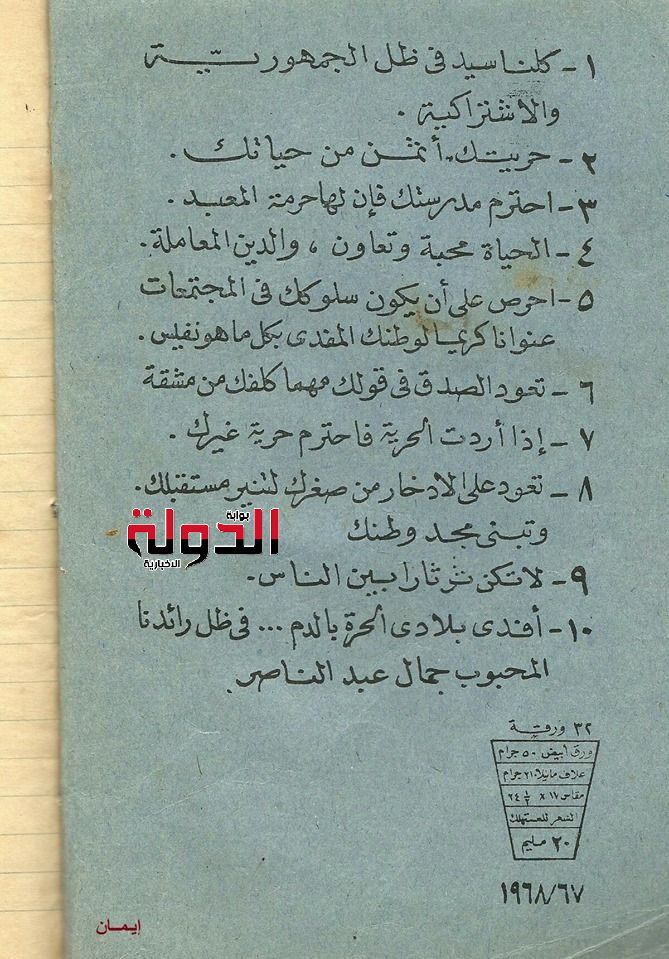 ١- كلنا سيد فى ظل الجمهوريّة
والاشتراكية .
٢- حريتك . أثمن من حياتك .
٣- احترم مدرستك فإن لها حرمة المعبد .
٤- الحياة محبة وتعاون ، والدين المعاملة .
٥- احرص على أن يكون سلوكك فى المجتمعات
عنوانا كريما لوطنك المفدى بكل ما هو نفيس .
٦- تعود الصدق فى قولك مهما كلفك من مشقة
٧- إذا أردت الحرية فاحترم حرية غيرك .
٨- تعود على الادخار من صغرك لتنير مستقبلك .
وتبنى مجد وطنك
بوابة
الدولة
الاخبارية
٩- لا تكن ثرثارا بين الناس .
١٠- أفدى بلادى الحرة بالدم ... فى ظل رائدنا
المحبوب جمال عبد الناصر .
٣٢ ورقة
ورق أبيض ٥٠ جرام
غلاف مانيلا ٢١٠ جرام
مقاس ١٧ × ٢٤ ١/٢
السعر للمستهلك
٢٠ مليم
١٩٦٨/٦٧
إيمان